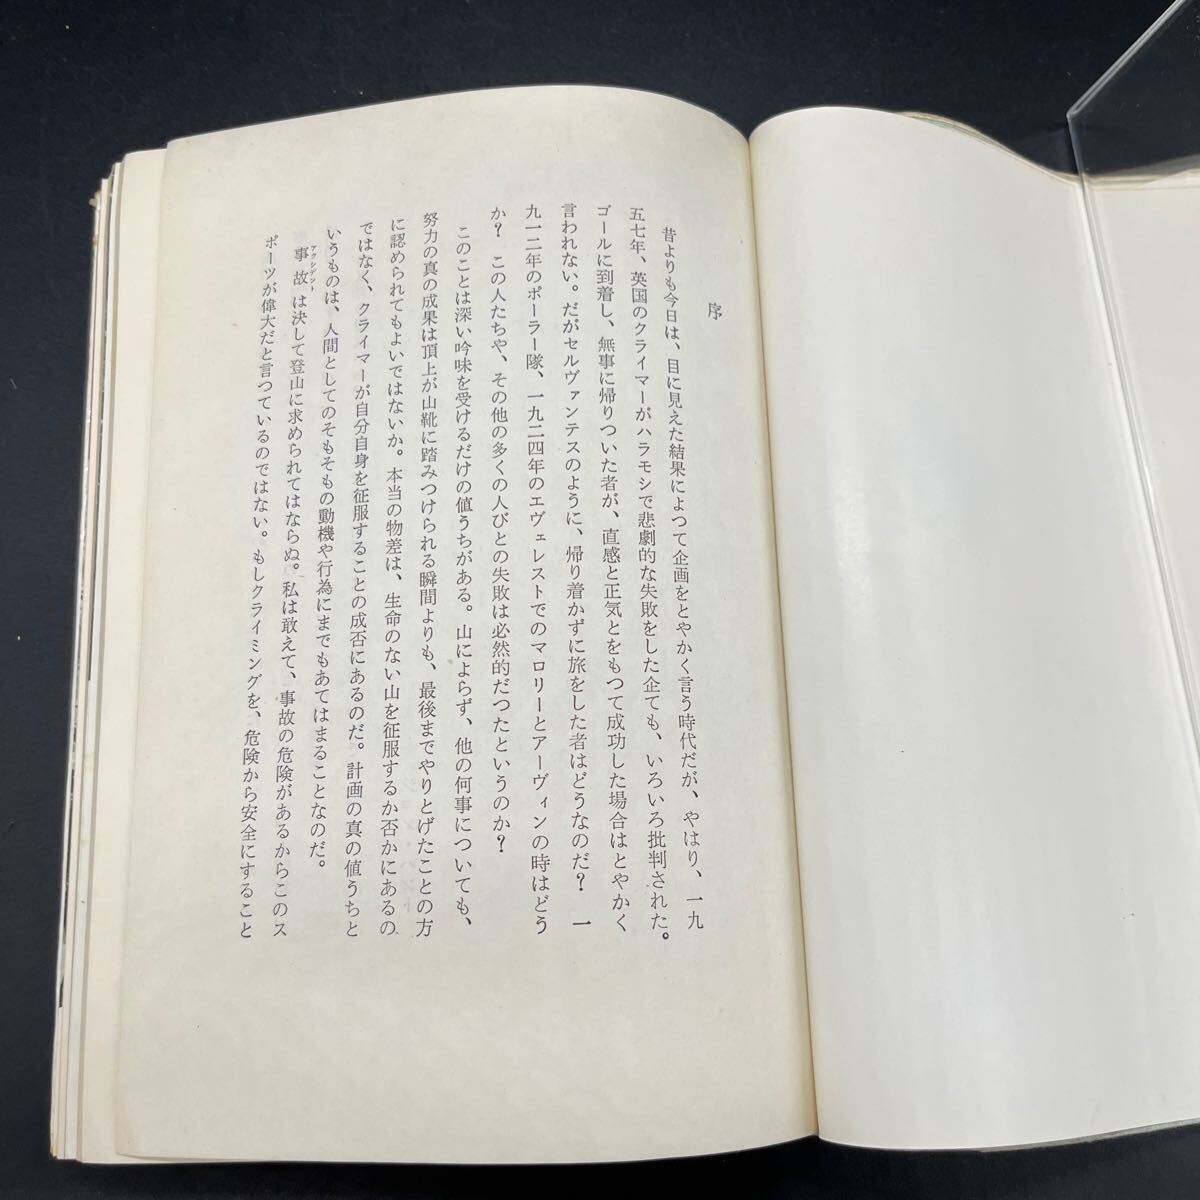 序
昔よりも今日は、目に見えた結果によつて企画をとやかく言う時代だが、やはり、一九
五七年、英国のクライマーがハラモシで悲劇的な失敗をした企ても、いろいろ批判された。
ゴールに到着し、無事に帰りついた者が、直感と正気とをもつて成功した場合はとやかく
言われない。だがセルヴァンテスのように、帰り着かずに旅をした者はどうなのだ？　一
九一二年のポーラー隊、一九二四年のエヴェレストでのマロリーとアーヴィンの時はどう
か？　この人たちや、その他の多くの人びとの失敗は必然的だつたというのか？
このことは深い吟味を受けるだけの値うちがある。山によらず、他の何事についても、
努力の真の成果は頂上が山靴に踏みつけられる瞬間よりも、最後までやりとげたことの方
に認められてもよいではないか。本当の物差は、生命のない山を征服するか否かにあるの
ではなく、クライマーが自分自身を征服することの成否にあるのだ。計画の真の値うちと
いうものは、人間としてのそもそもの動機や行為にまでもあてはまることなのだ。
事故アクシデントは決して登山に求められてはならぬ。私は敢えて、事故の危険があるからこのス
ポーツが偉大だと言つているのではない。もしクライミングを、危険から安全にすること